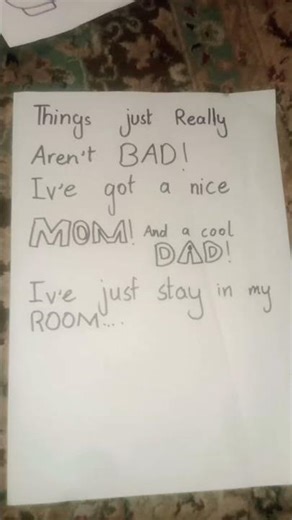 Things just Really
Aren't BAD!
Iv'e got a nice
MOM! And a cool
DAD!
Iv'e just stay in my
ROOM....